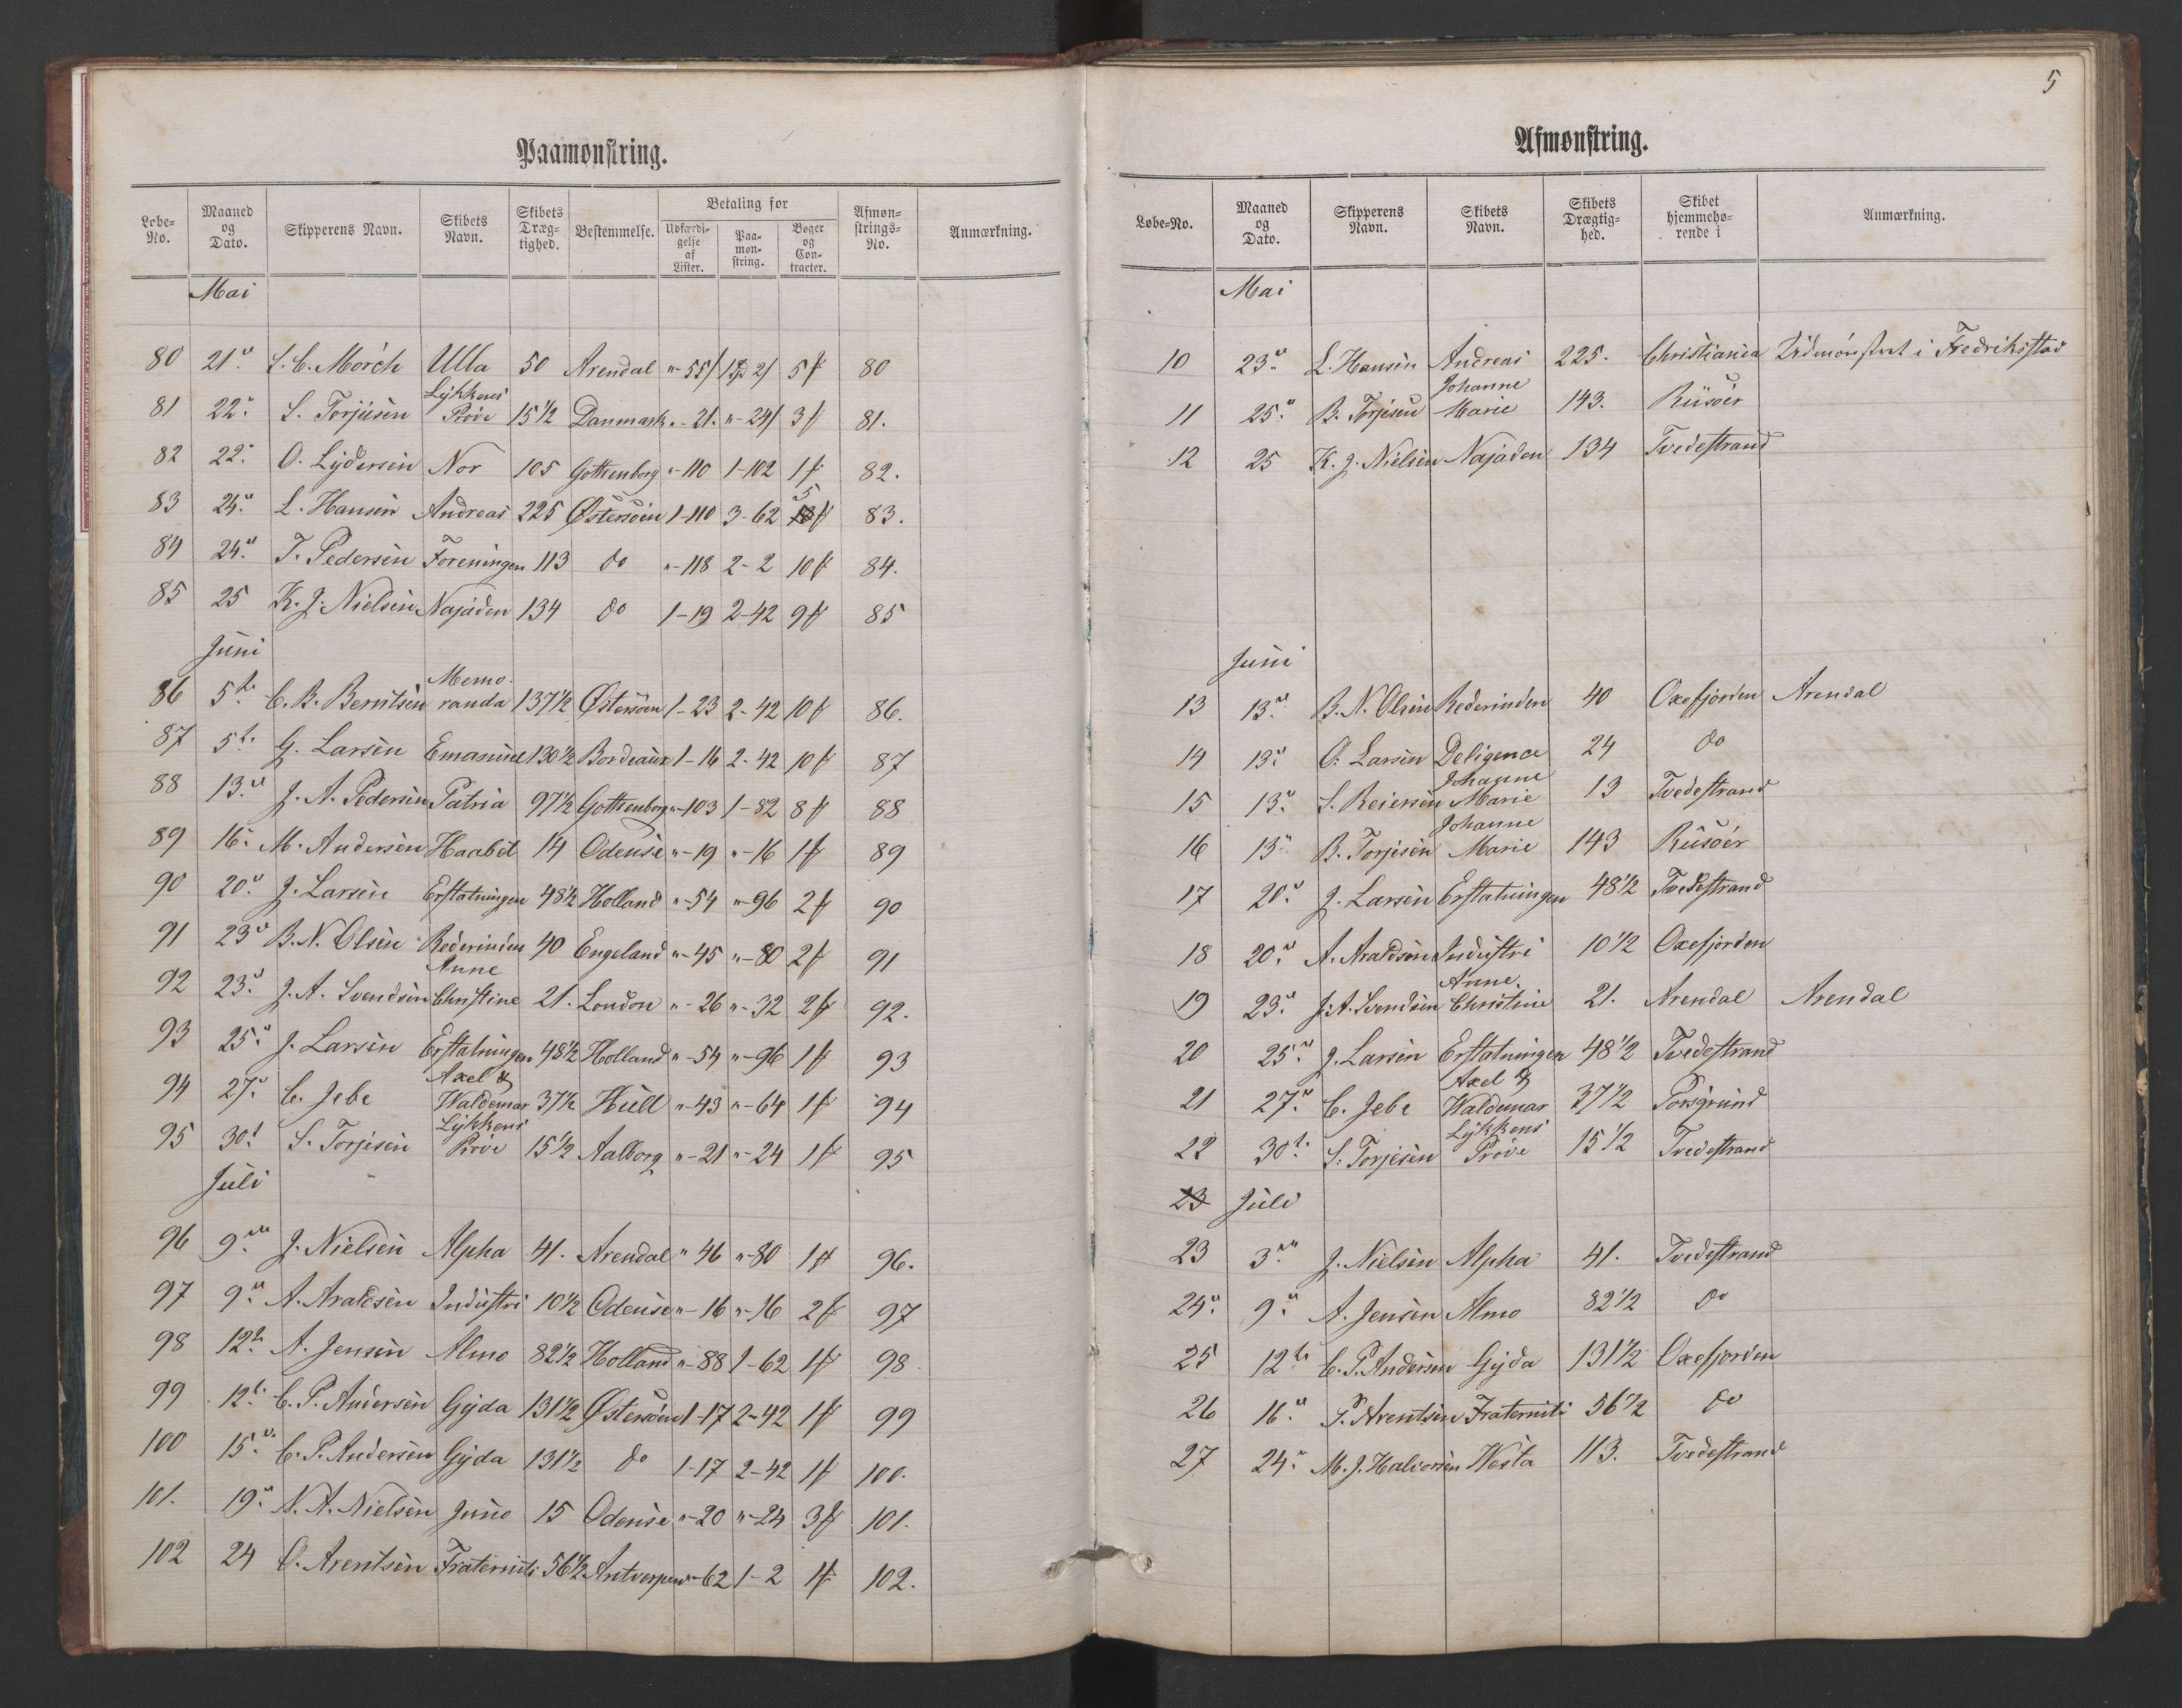 5
Paamønstring.
Løbe-No. | Maaned og Dato. | Skipperens Navn. | Skibets Navn. | Skibets Dræg-tighed. | Bestemmelse. | Betaling for Udfærdi-gelse af Lister. | Paa-møn-string. | Bøger og Con-tracter. | Afmøn-strings-No. | Anmærkning.
Mai
80 21de S. C. Mørch Ulla 50 Arendal "-55 5 80
81 22 S. Torjusen Lykkens Prøve 15 1/2 Danmark "-21. "-24 3 81.
82 22 O. Lydersen Nor 105 Gottenborg "-110 1-102 1 82.
83 24 L. Hansen Andreas 225 Østersøen 1-110 3-62 5 83.
84 24 T. Pedersen Foreningen 113 do "-118 2-2 10 84.
85 25 K. J. Nielsen Najaden 134 do 1-19 2-42 9 85
Juni
86 5t. C. B. Berntsen Memo-randa 137 1/2 Østersøen 1-23 2-42 10 86.
87 5t. G. Larsen Emanuel 130 1/2 Bordeaux 1-16 2-42 10 87
88 13 J. A. Pedersen Patria 97 1/2 Gottenborg "-103 1-82 8 88
89 16 M. Andersen Haabet 14 Odense "-19 "-16 1 89
90 20 J. Larsen Erstatningen 48 1/2 Holland "-54 "-96 2 90
91 23 B. N. Olsen Rederinden 40 Engeland "-45 "-80 2 91
92 23 J. A. Svendsen Anne Christine 21. London "-26 "-32 2 92.
93 25 J. Larsen Erstatningen 48 1/2 Holland "-54 "-96 1 93
94 27 C. Jebe Axel & Waldemar 37 1/2 Hull "-43 "-64 1 94
95 30t S. Torjesen Lykkens Prøve 15 1/2 Aalborg "-21 "-24 1 95
Juli
96 9 J. Nielsen Alpha 41. Arendal " 46 "-80 1 96.
97 9 A. Araldsen Industri 10 1/2 Odense "-16 "-16 2 97
98 12t A. Jensen Almo 82 1/2 Holland "-88 1-62 1 98
99 12t. C. P. Andersen Gyda 131 1/2 Østersøen 1-17 2-42 1 99
100 15 C. P. Andersen Gyda 131 1/2 do 1-17 2-42 1 100.
101. 19 N. A. Nielsen Juno 15 Odense "-20 "-24 3 101.
102 24 O. Arentsen Fraterniti 56 1/2 Antverpen "-62 1-2 1 102.
Afmønstring.
Løbe-No. | Maaned og Dato. | Skipperens Navn. | Skibets Navn. | Skibets Drægtig-hed. | Skibet hjemmehø-rende i | Anmærkning.
Mai
10 23 L. Hansen Andreas 225. Christiania Udmønstret i Fredrikstad
11 25 B. Torjesen Johanne Marie 143. Riisøer
12 25 K. J. Nielsen Najaden 134 Tvedestrand
Juni
13 13 B. N. Olsen Rederinden 40 Oxefjorden Arendal
14 13 O. Larsen Deligence 24 do
15 13 S. Reiersen Johanne Marie 13 Tvedestrand
16 13 B. Torjesen Johanne Marie 143 Riisøer
17 20 J. Larsen Erstatningen 48 1/2 Tvedestrand
18 20 A. Araldsen Industri 10 1/2 Oxefjorden
19 23 J. A. Svendsen Anne Christine 21. Arendal Arendal
20 25 J. Larsen Erstatningen 48 1/2 Tvedestrand
21 27 C. Jebe Axel & Waldemar 37 1/2 Porsgrund
22 30t. S. Torjesen Lykkens Prøve 15 1/2 Tvedestrand
23 Juli
23 3 J. Nielsen Alpha 41. Tvedestrand
24 9 A. Jensen Almo 82 1/2 do
25 12te C. P. Andersen Gyda 131 1/2 Oxefjorden
26 16 Arentsen Fraterniti 56 1/2 do
27 24 M. J. Halvorsen Westa 113. Tvedestrand